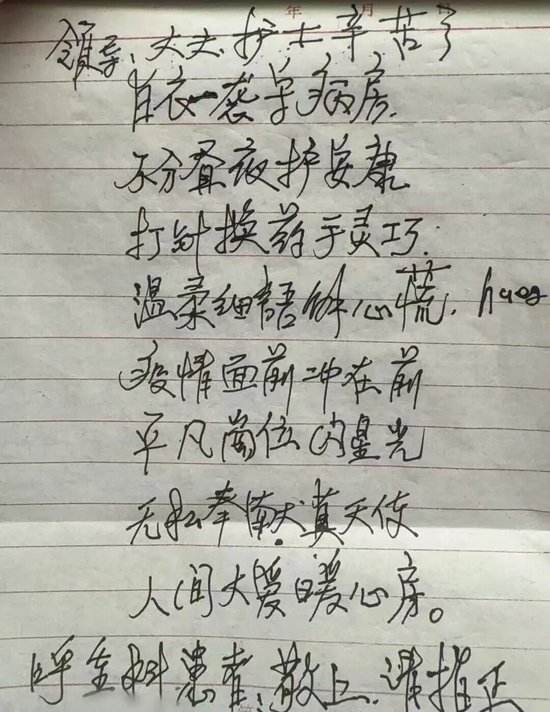 年 月
领导、大夫、护士辛苦了
白衣一袭守病房.
不分昼夜护安康
打针换药手灵巧.
温柔细语解心慌. huag
疫情面前冲在前
平凡岗位闪星光
无私奉献真天使
人间大爱暖心房。
呼重科患者.敬上.请指正